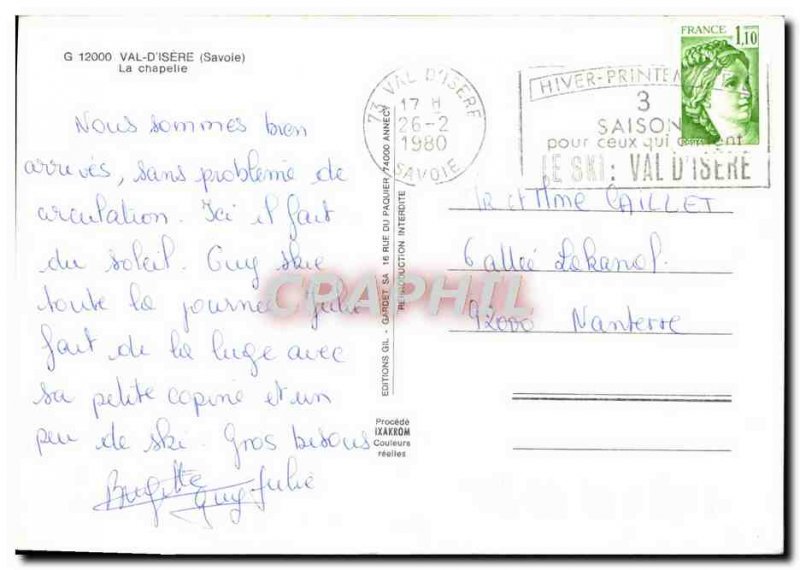 G 12000 VAL-D'ISÈRE (Savoie)
La chapelle
Nous sommes bien
arrivés, sans problème de
circulation. Ici il fait
du soleil. Guy skie
toute la journée Julie
fait de la luge avec
sa petite copine et un
peu de ski. Gros bisous
Brigitte
Guy Julie
EDITIONS GIL - GARDET SA 16 RUE DU PAQUIER 74000 ANNECY
REPRODUCTION INTERDITE
Procédé
IXAKROM
Couleurs
réelles
73 VAL D'ISERE
17 H
26-2
1980
SAVOIE
HIVER-PRINTEM
3
SAISON
pour ceux qui ent
LE SKI: VAL D'ISÈRE
FRANCE
1,10
Mr et Mme CAILLET
6 allée
92000 Nanterre
CPAPHIL